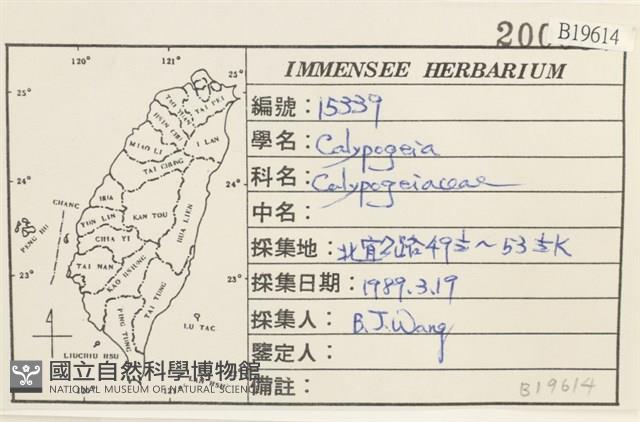 B19614
IMMENSEE HERBARIUM
編號：15339
學名：Calypogeia
科名：Calypogeiaceae
中名：
採集地：北宜公路49½～53½K
採集日期：1989.3.19
採集人：B.J.Wang
鑒定人：
備註：
B19614
120° 121°
25° 25°
TAO YUAN TAI PEI
HSIN CHU
I LAN
MIAO LI
TAI CHUNG
24° 24°
CHANG HUA
YUN LIN NAN TOU
HUA LIEN
PENG HU
CHIA YI
TAI NAN
KAO HSIUNG
23° 23°
TAI TUNG
PING TUNG
LU TAO
LIUCHIU HSU
LAN HSU
120° 121°
國立自然科學博物館
NATIONAL MUSEUM OF NATURAL SCIENCE